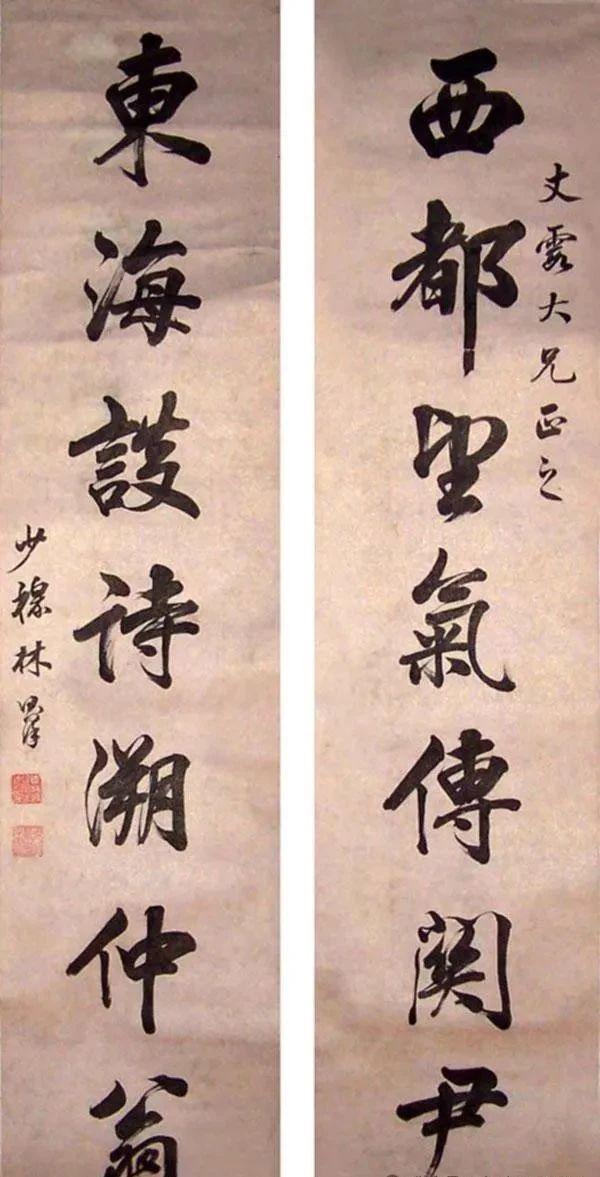 大兄正之
西都望氣傳關尹
東海護詩溯仲翁
少穆林則徐